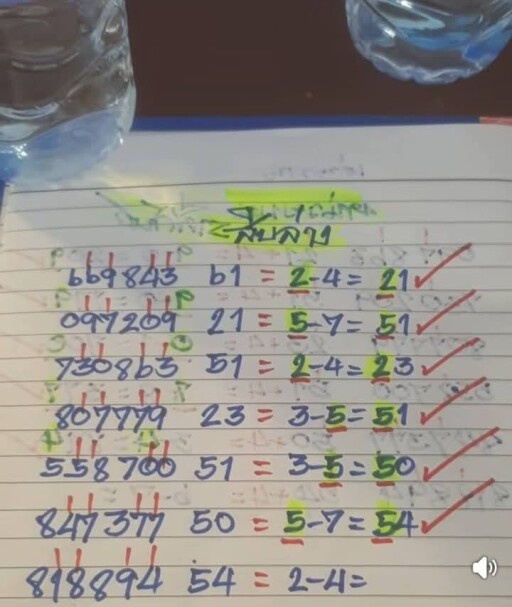 สิบล่าง
669843 61 = 2-4= 21
097209 21 = 5-7= 51
730863 51 = 2-4= 23
807779 23 = 3-5= 51
558700 51 = 3-5= 50
847377 50 = 5-7= 54
818894 54 = 2-4=